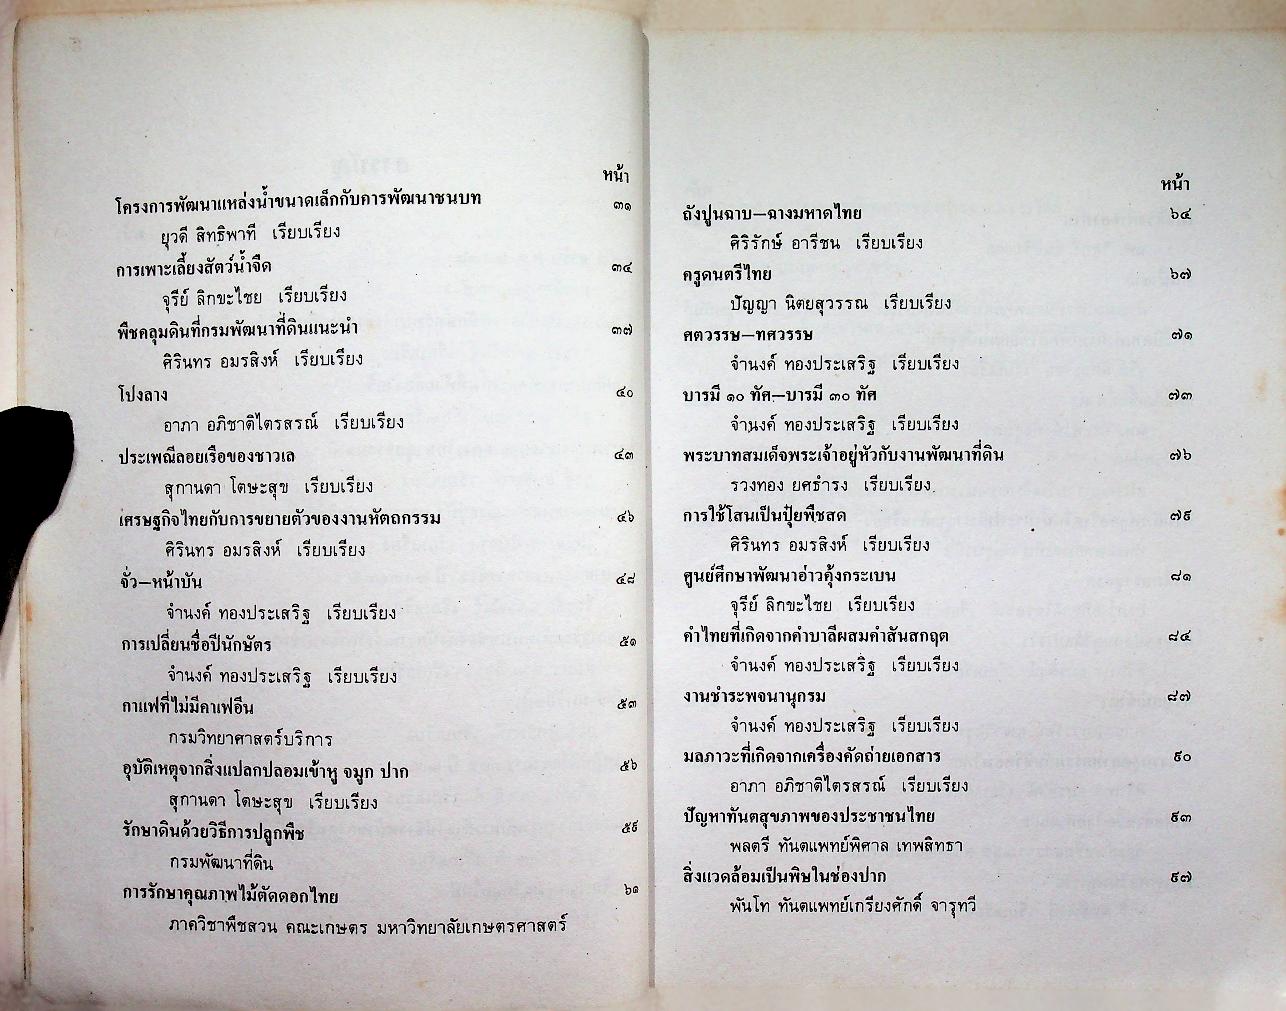 หน้า
โครงการพัฒนาแหล่งน้ำขนาดเล็กกับการพัฒนาชนบท ๓๑
ยุวดี สิทธิพาที เรียบเรียง
การเพาะเลี้ยงสัตว์น้ำจืด ๓๔
จุรีย์ ลิกขะไชย เรียบเรียง
พืชคลุมดินที่กรมพัฒนาที่ดินแนะนำ ๓๗
ศิรินทร อมรสิงห์ เรียบเรียง
โปงลาง ๔๐
อาภา อภิชาติไตรสรณ์ เรียบเรียง
ประเพณีลอยเรือของชาวเล ๔๓
สุกานดา โตษะสุข เรียบเรียง
เศรษฐกิจไทยกับการขยายตัวของงานหัตถกรรม ๔๖
ศิรินทร อมรสิงห์ เรียบเรียง
จั่ว—หน้าบัน ๔๘
จำนงค์ ทองประเสริฐ เรียบเรียง
การเปลี่ยนชื่อปีนักษัตร ๕๑
จำนงค์ ทองประเสริฐ เรียบเรียง
กาแฟที่ไม่มีคาเฟอีน ๕๓
กรมวิทยาศาสตร์บริการ
อุบัติเหตุจากสิ่งแปลกปลอมเข้าหู จมูก ปาก ๕๖
สุกานดา โตษะสุข เรียบเรียง
รักษาดินด้วยวิธีการปลูกพืช ๕๙
กรมพัฒนาที่ดิน
การรักษาคุณภาพไม้ตัดดอกไทย ๖๑
ภาควิชาพืชสวน คณะเกษตร มหาวิทยาลัยเกษตรศาสตร์
หน้า
ถังปูนฉาบ—ฉางมหาดไทย ๖๔
ศิริรักษ์ อารีชน เรียบเรียง
ครูดนตรีไทย ๖๗
ปัญญา นิตยสุวรรณ เรียบเรียง
ศตวรรษ—ทศวรรษ ๗๑
จำนงค์ ทองประเสริฐ เรียบเรียง
บารมี ๑๐ ทัศ—บารมี ๓๐ ทัศ ๗๓
จำนงค์ ทองประเสริฐ เรียบเรียง
พระบาทสมเด็จพระเจ้าอยู่หัวกับงานพัฒนาที่ดิน ๗๖
รวงทอง ยศธำรง เรียบเรียง
การใช้โสนเป็นปุ๋ยพืชสด ๗๙
ศิรินทร อมรสิงห์ เรียบเรียง
ศูนย์ศึกษาพัฒนาอ่าวคุ้งกระเบน ๘๑
จุรีย์ ลิกขะไชย เรียบเรียง
คำไทยที่เกิดจากคำบาลีผสมคำสันสกฤต ๘๔
จำนงค์ ทองประเสริฐ เรียบเรียง
งานชำระพจนานุกรม ๘๗
จำนงค์ ทองประเสริฐ เรียบเรียง
มลภาวะที่เกิดจากเครื่องคัดถ่ายเอกสาร ๙๐
อาภา อภิชาติไตรสรณ์ เรียบเรียง
ปัญหาทันตสุขภาพของประชาชนไทย ๙๓
พลตรี ทันตแพทย์พิศาล เทพสิทธา
สิ่งแวดล้อมเป็นพิษในช่องปาก ๙๗
พันโท ทันตแพทย์เกรียงศักดิ์ จารุทวี